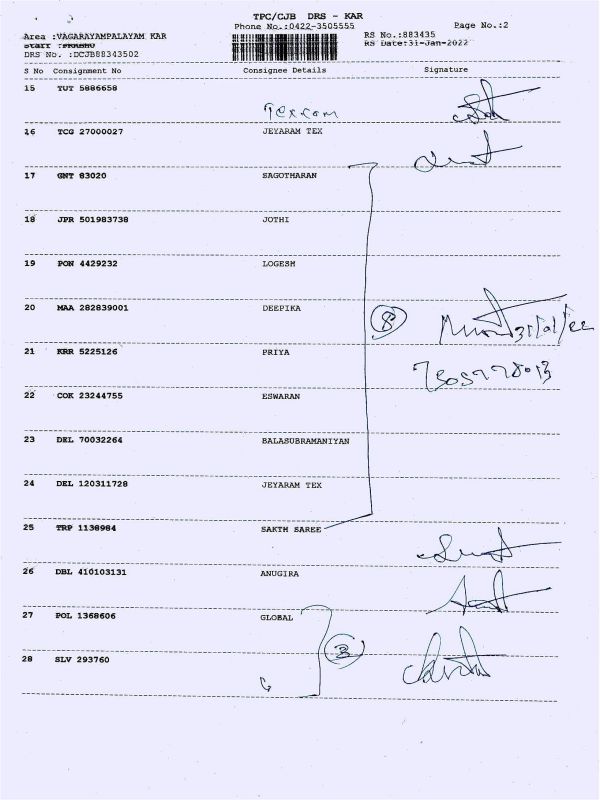 TPC/CJB DRS - KAR
Phone No.:0422-3505555 Page No.:2
Area :VAGARAYAMPALAYAM KAR RS No.:883435
Staff :PRABHU RS Date:31-Jan-2022
DRS No. :DCJB88343502
S No Consignment No Consignee Details Signature
15 TUT 5886658
Texcom
16 TCG 27000027 JEYARAM TEX
17 GNT 83020 SAGOTHARAN
18 JPR 501983738 JOTHI
19 PON 4429232 LOGESH
20 MAA 282839001 DEEPIKA
8
31/01/22
21 KRR 5225126 PRIYA
22 COK 23244755 ESWARAN
23 DEL 70032264 BALASUBRAMANIYAN
24 DEL 120311728 JEYARAM TEX
25 TRP 1138984 SAKTH SAREE
26 DBL 410103131 ANUGIRA
27 POL 1368606 GLOBAL
3
28 SLV 293760